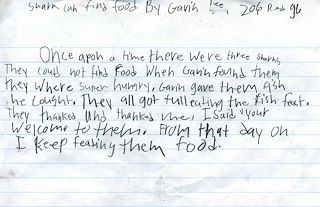 shark can find food By Gavin Lee, 206 Red 96
Once apon a time there were three sharks
They could not find Food When Garin found them
they Where Super hungry. Garin gave them Fish
he cought. They all got full eating the Fish feast.
They thanked and thanked me. I Said "your
Welcome to them. From that day on
I keep feading them food.